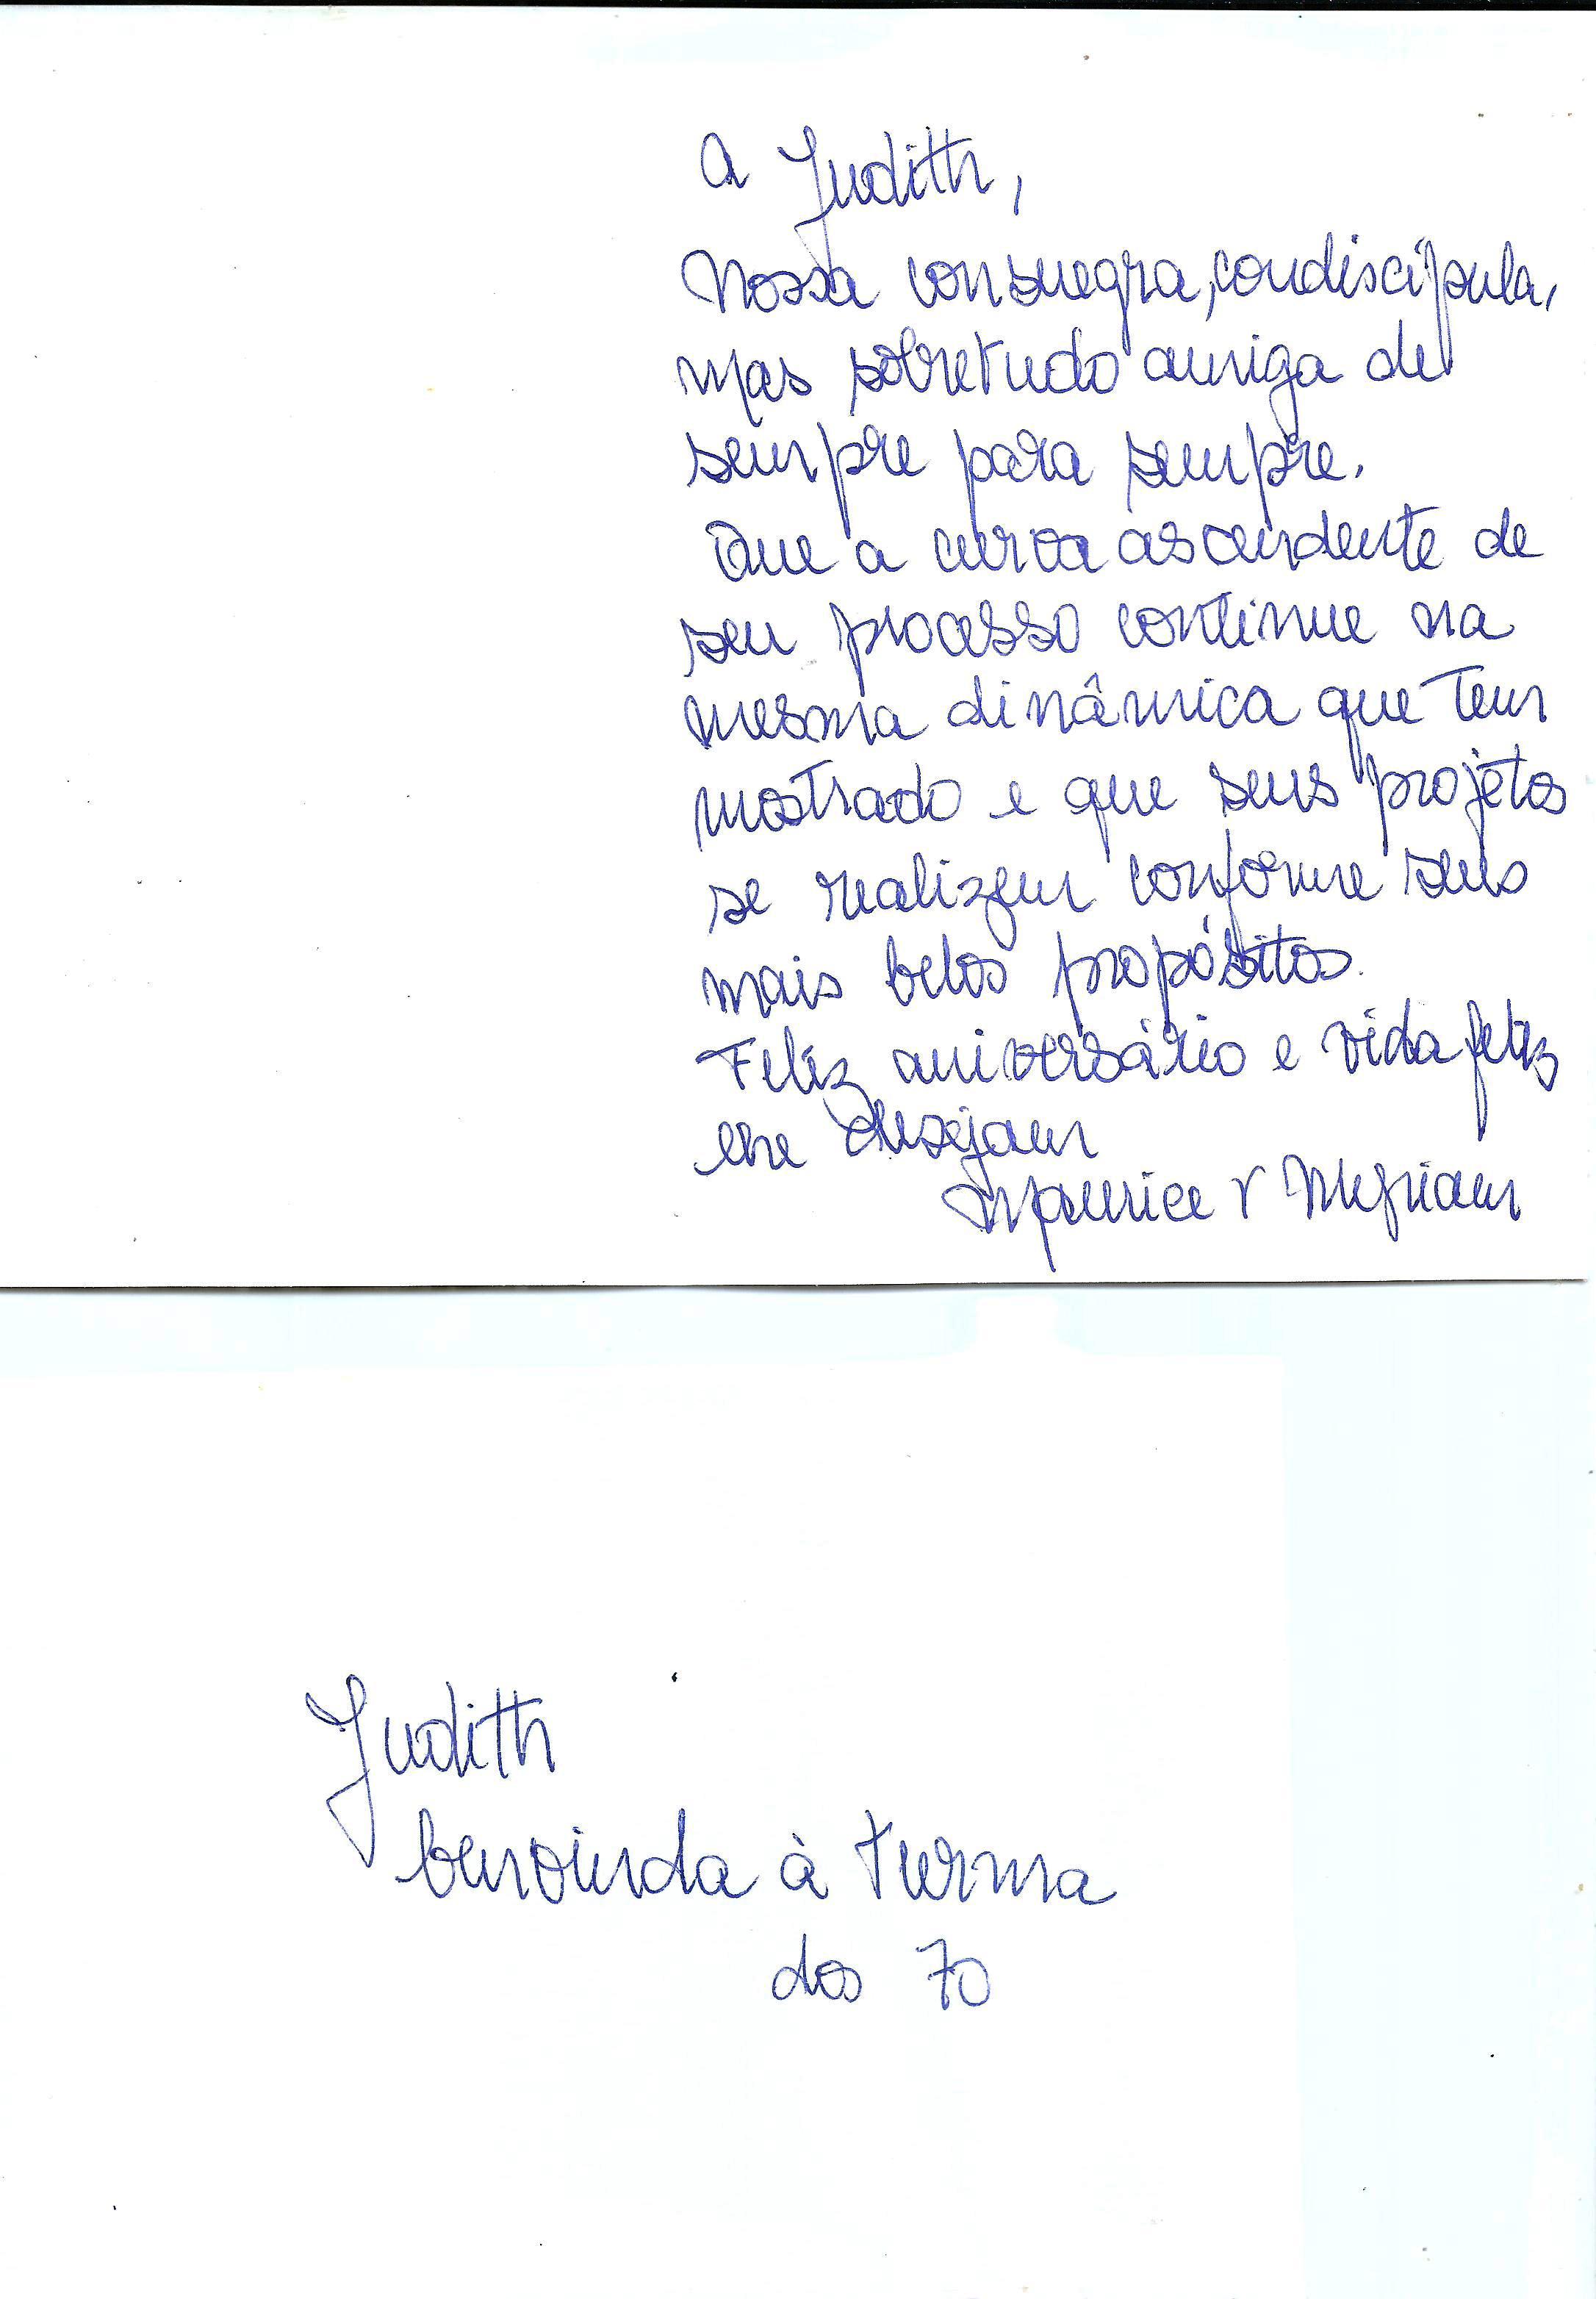 A Judith,
Nossa consuegra, condiscípula,
mas sobretudo amiga de
sempre para sempre.
Que a curva ascendente de
seu processo continue na
mesma dinâmica que tem
mostrado e que seus projetos
se realizem conforme seus
mais belos propósitos.
Feliz aniversário e vida feliz
lhe desejam
Maurice e Myriam
Judith
benvinda à turma
dos 70